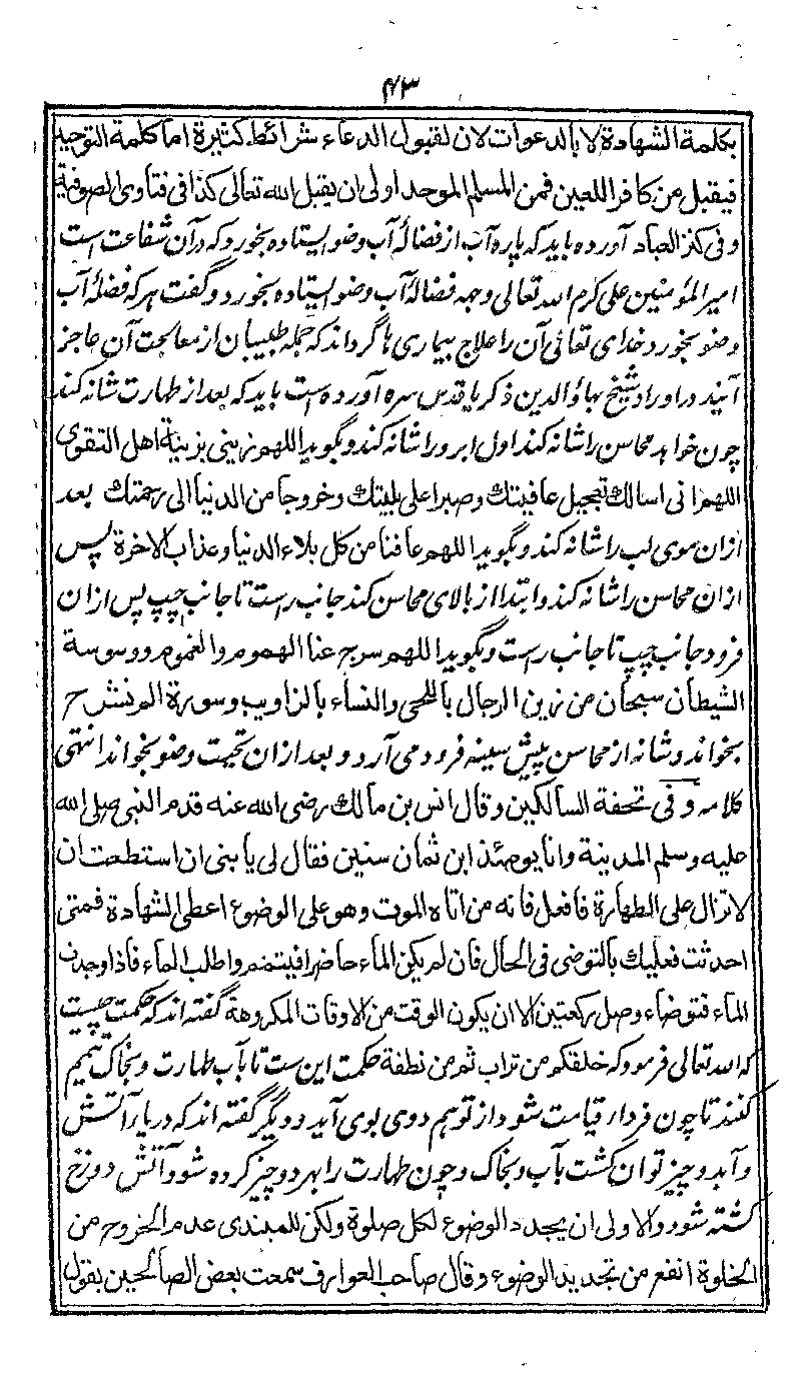 ۴۳
بكلمة الشهادة لا بالدعوات لان لقبول الدعاء شرائط كثيرة اما كلمة التوحيد
فيقبل من كافر اللعين فمن المسلم الموحد اولى ان يقبل الله تعالى كذا فى فتاوى الصوفية
وفى كنز العباد آورده باید که پاره آب از فضالۀ آب وضو ایستاده بخورد که درآن شفاعت است
امیرالمؤمنین علی کرم الله تعالی وجهه فضالۀ آب وضو ایستاده بخورد و گفت هر که فضلۀ آب
وضو بخورد خدای تعالی آن را علاج بیماری ها گرداند که جمله طبیبان از معالجت آن عاجز
آیند در اوراد شیخ بهاؤالدین ذکریا قدس سره آورده است باید که بعد از طهارت شانه کند
چون خواهد محاسن را شانه کند اول ابرو را شانه کند و بگوید اللهم زینی بزینة اهل التقوى
اللهم انى اسالك تعجيل عافيتك وصبرا على بليتك وخروجا من الدنيا الى رحمتك بعد
ازان موی لب را شانه کند و بگوید اللهم عافنا من كل بلاء الدنيا وعذاب الاخرة پس
ازان محاسن را شانه کند و ابتدا از بالای محاسن کند جانب راست تا جانب چپ پس ازان
فرود جانب چپ تا جانب راست و بگوید اللهم سرج عنا الهموم والغموم ووسوسة
الشیطان سبحان من زین الرجال باللحى والنساء بالزاویب وسورة الم نشرح
بخواند و شانه از محاسن پیش سینه فرود می آرد و بعد ازان تحیت وضو بخواند انتهی
کلامه وفى تحفة السالكين وقال انس بن مالك رضى الله عنه قدم النبى صلى الله
عليه وسلم المدينة وانا يومئذ ابن ثمان سنين فقال لى يا بنى ان استطعت ان
لا تزال على الطهارة فافعل فانه من اتاه الموت وهو على الوضوء اعطى الشهادة فمتى
احدثت فعليك بالتوضى فى الحال فان لم يكن الماء حاضرا فيتمم واطلب الماء فاذا وجدت
الماء فتوضاء وصل ركعتين الا ان يكون الوقت من الاوقات المكروهة گفته اند که حکمت چیست
که الله تعالی فرمود که خلقکم من تراب ثم من نطفة حکمت این ست تا بآب طهارت و بخاک تیمم
کنند تا چون فردار قیامت شود از تو هم دوی بوی آید و دیگر گفته اند که دریا را آتش
و آبدو چیز توان کشت بآب و بخاک و چون طهارت را بهر دو چیز کرده شود آتش دوزخ
کشته شود والاولى ان يجدد الوضوء لكل صلوة ولكن للمبتدى عدم الخروج من
الخلوة انفع من تجديد الوضوء وقال صاحب العوارف سمعت بعض الصالحين يقول